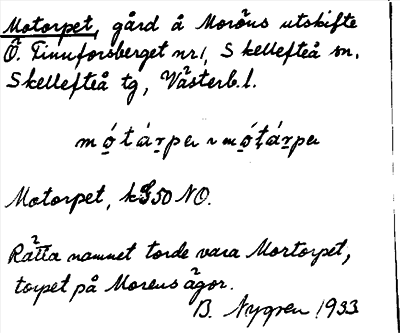 Motorpet, gård å Moröns utskifte
Ö. Finnforsberget nr 1, Skellefteå sn.
Skellefteå tg, Västerb. l.
mótárpeɩ ~ mótárpeɩ
Motorpet, k 50 NO.
Rätta namnet torde vara Mortorpet,
torpet på Morens ägor.
B. Nygren 1933